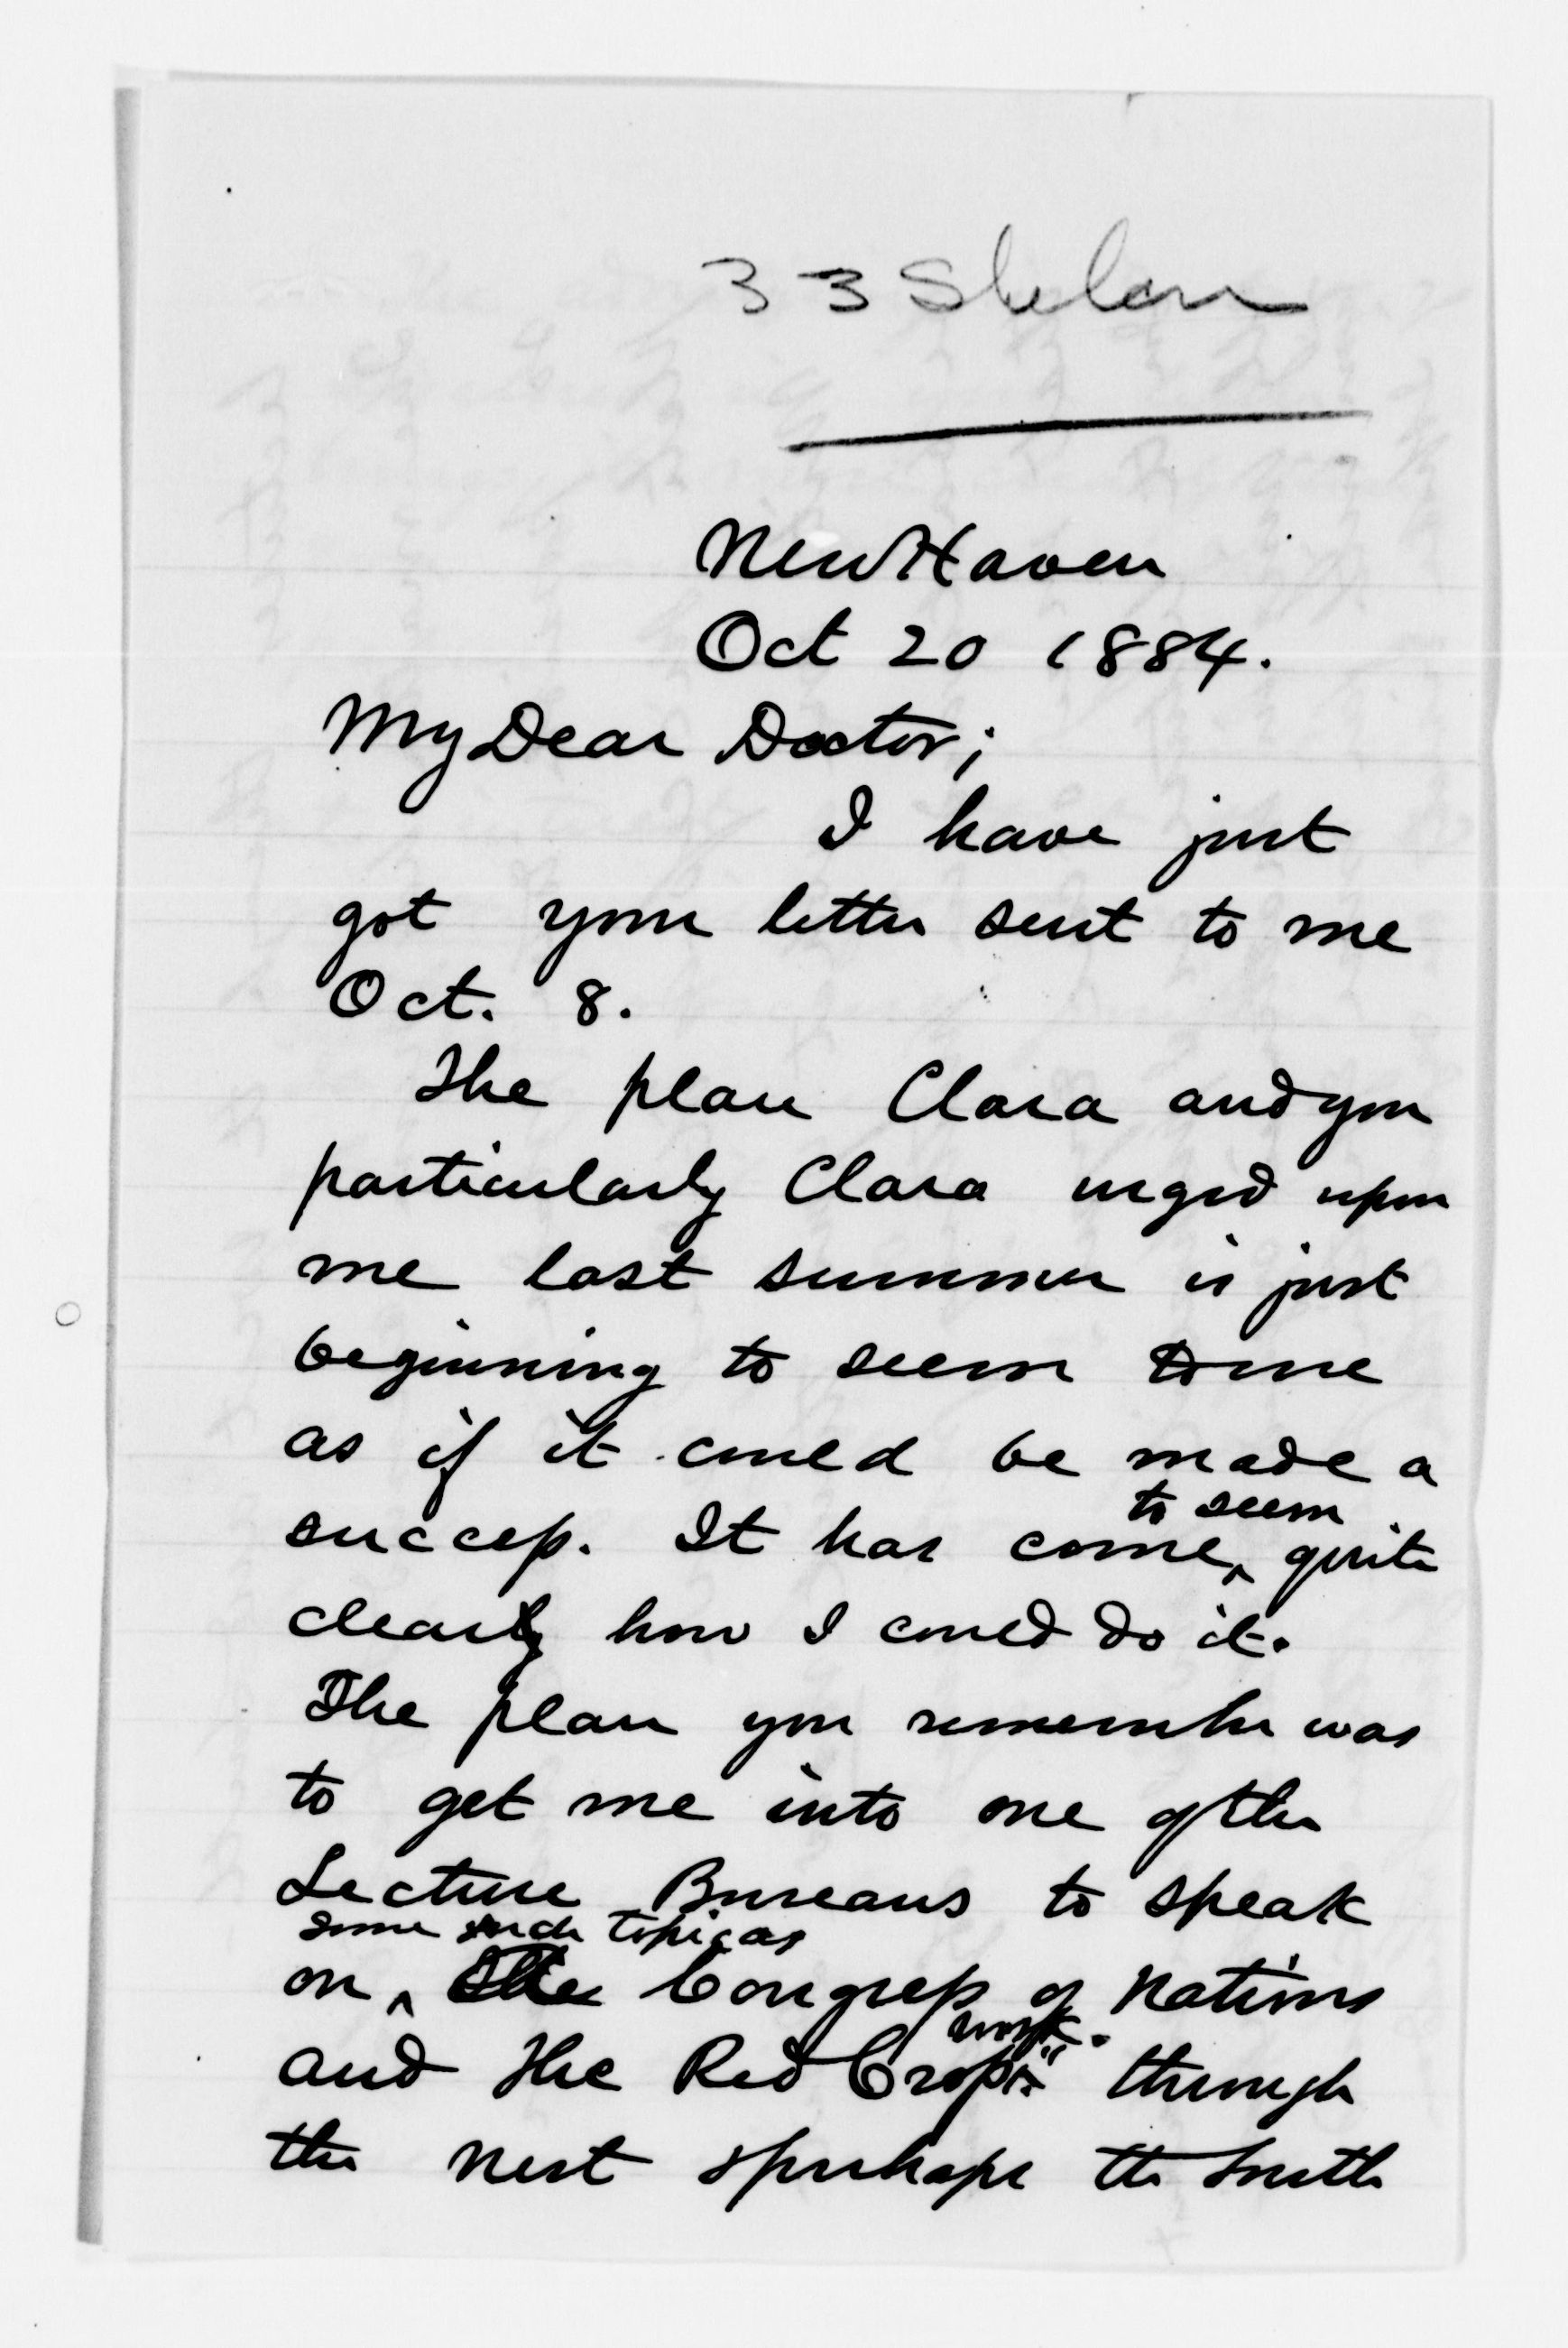 33 Shelon
New Haven
Oct 20 1884.
My Dear Doctor;
I have just
got your letter sent to me
Oct. 8.
The plan Clara and you
particularly Clara urged upon
me last summer is just
beginning to seem to me
as if it could be made a
to seem
success. It has come ^ quite
clearly how I could do it.
The plan you remember was
to get me into one of the
Lecture Bureaus to speak
some such topic as
on ^ The Congress of Nations
work."
and the Red Cross through
the West & perhaps the South